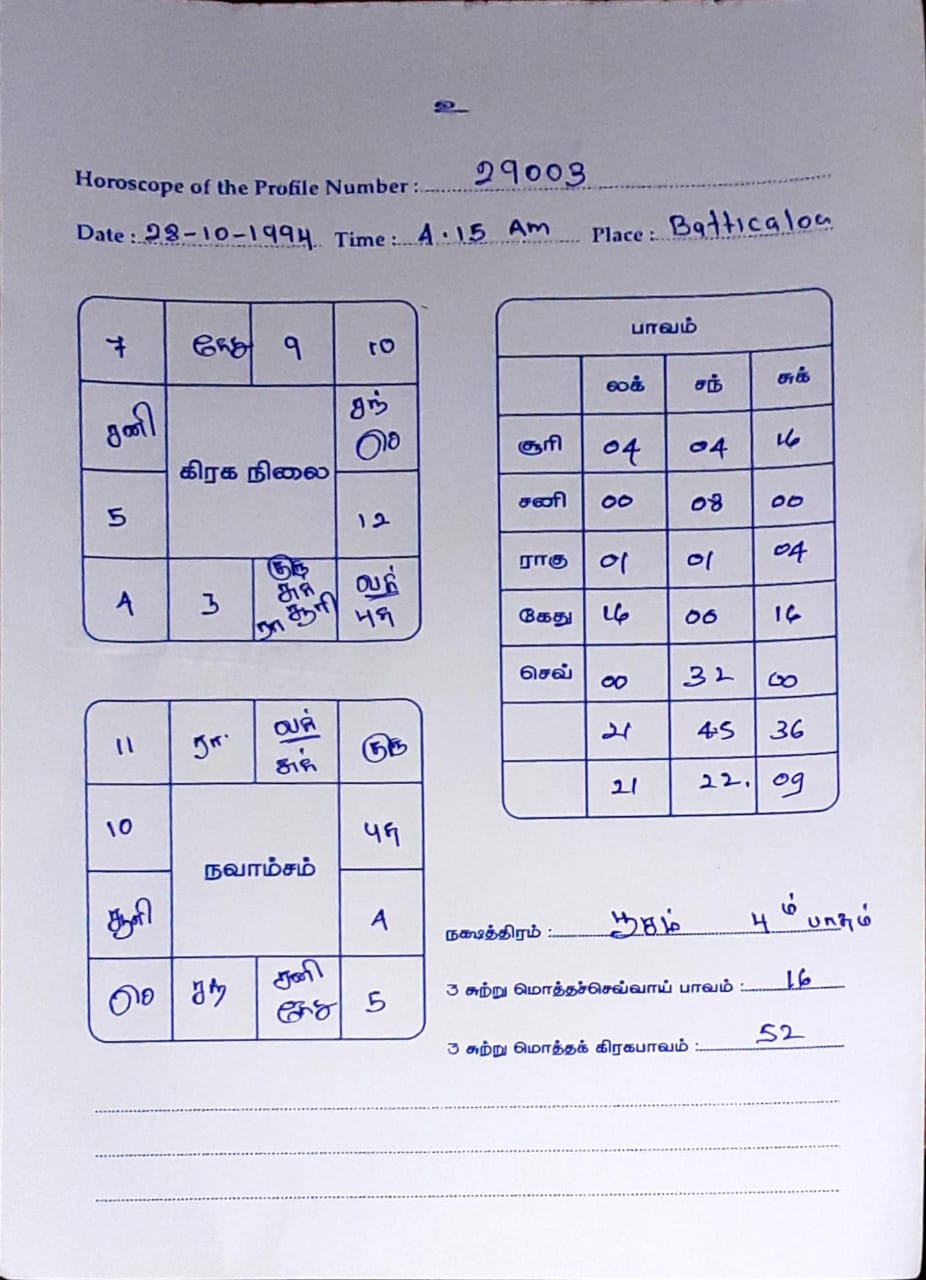 உ
Horoscope of the Profile Number : 29003
Date : 28-10-1994 Time : 4.15 Am Place : Batticaloa
7 கேது 9 10
சனி சந் செ
கிரக நிலை
5 12
4 3 குரு சுக் சூரி ரா லக் புத
பாவம்
லக் சந் சுக்
சூரி 04 04 16
சனி 00 08 00
ராகு 01 01 04
கேது 16 00 16
செவ் 00 32 00
21 45 36
21 22. 09
11 ரா. லக் சுக் குரு
10 புத
நவாம்சம்
சூரி 4
செ சந் சனி கேது 5
நக்ஷத்திரம் : பூசம் 4ம் பாதம்
3 சுற்று மொத்தச்செவ்வாய் பாவம் : 16
3 சுற்று மொத்தக் கிரகபாவம் : 52